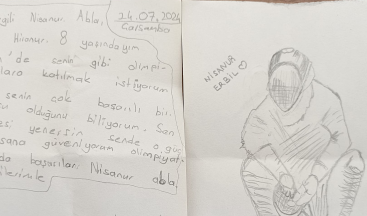 gili Nisanur Abla,
24.07.2024
Çarşamba
8 yaşındayım
'de senin gibi olimpi-
lara katılmak istiyorum
senin çok başarılı bir
olduğunu biliyorum. Sen
yenersin sende o güç
sana güveniyorum olimpiyat-
da başarılar Nisanur abla
ilerimle
NİSANUR
ERBİL